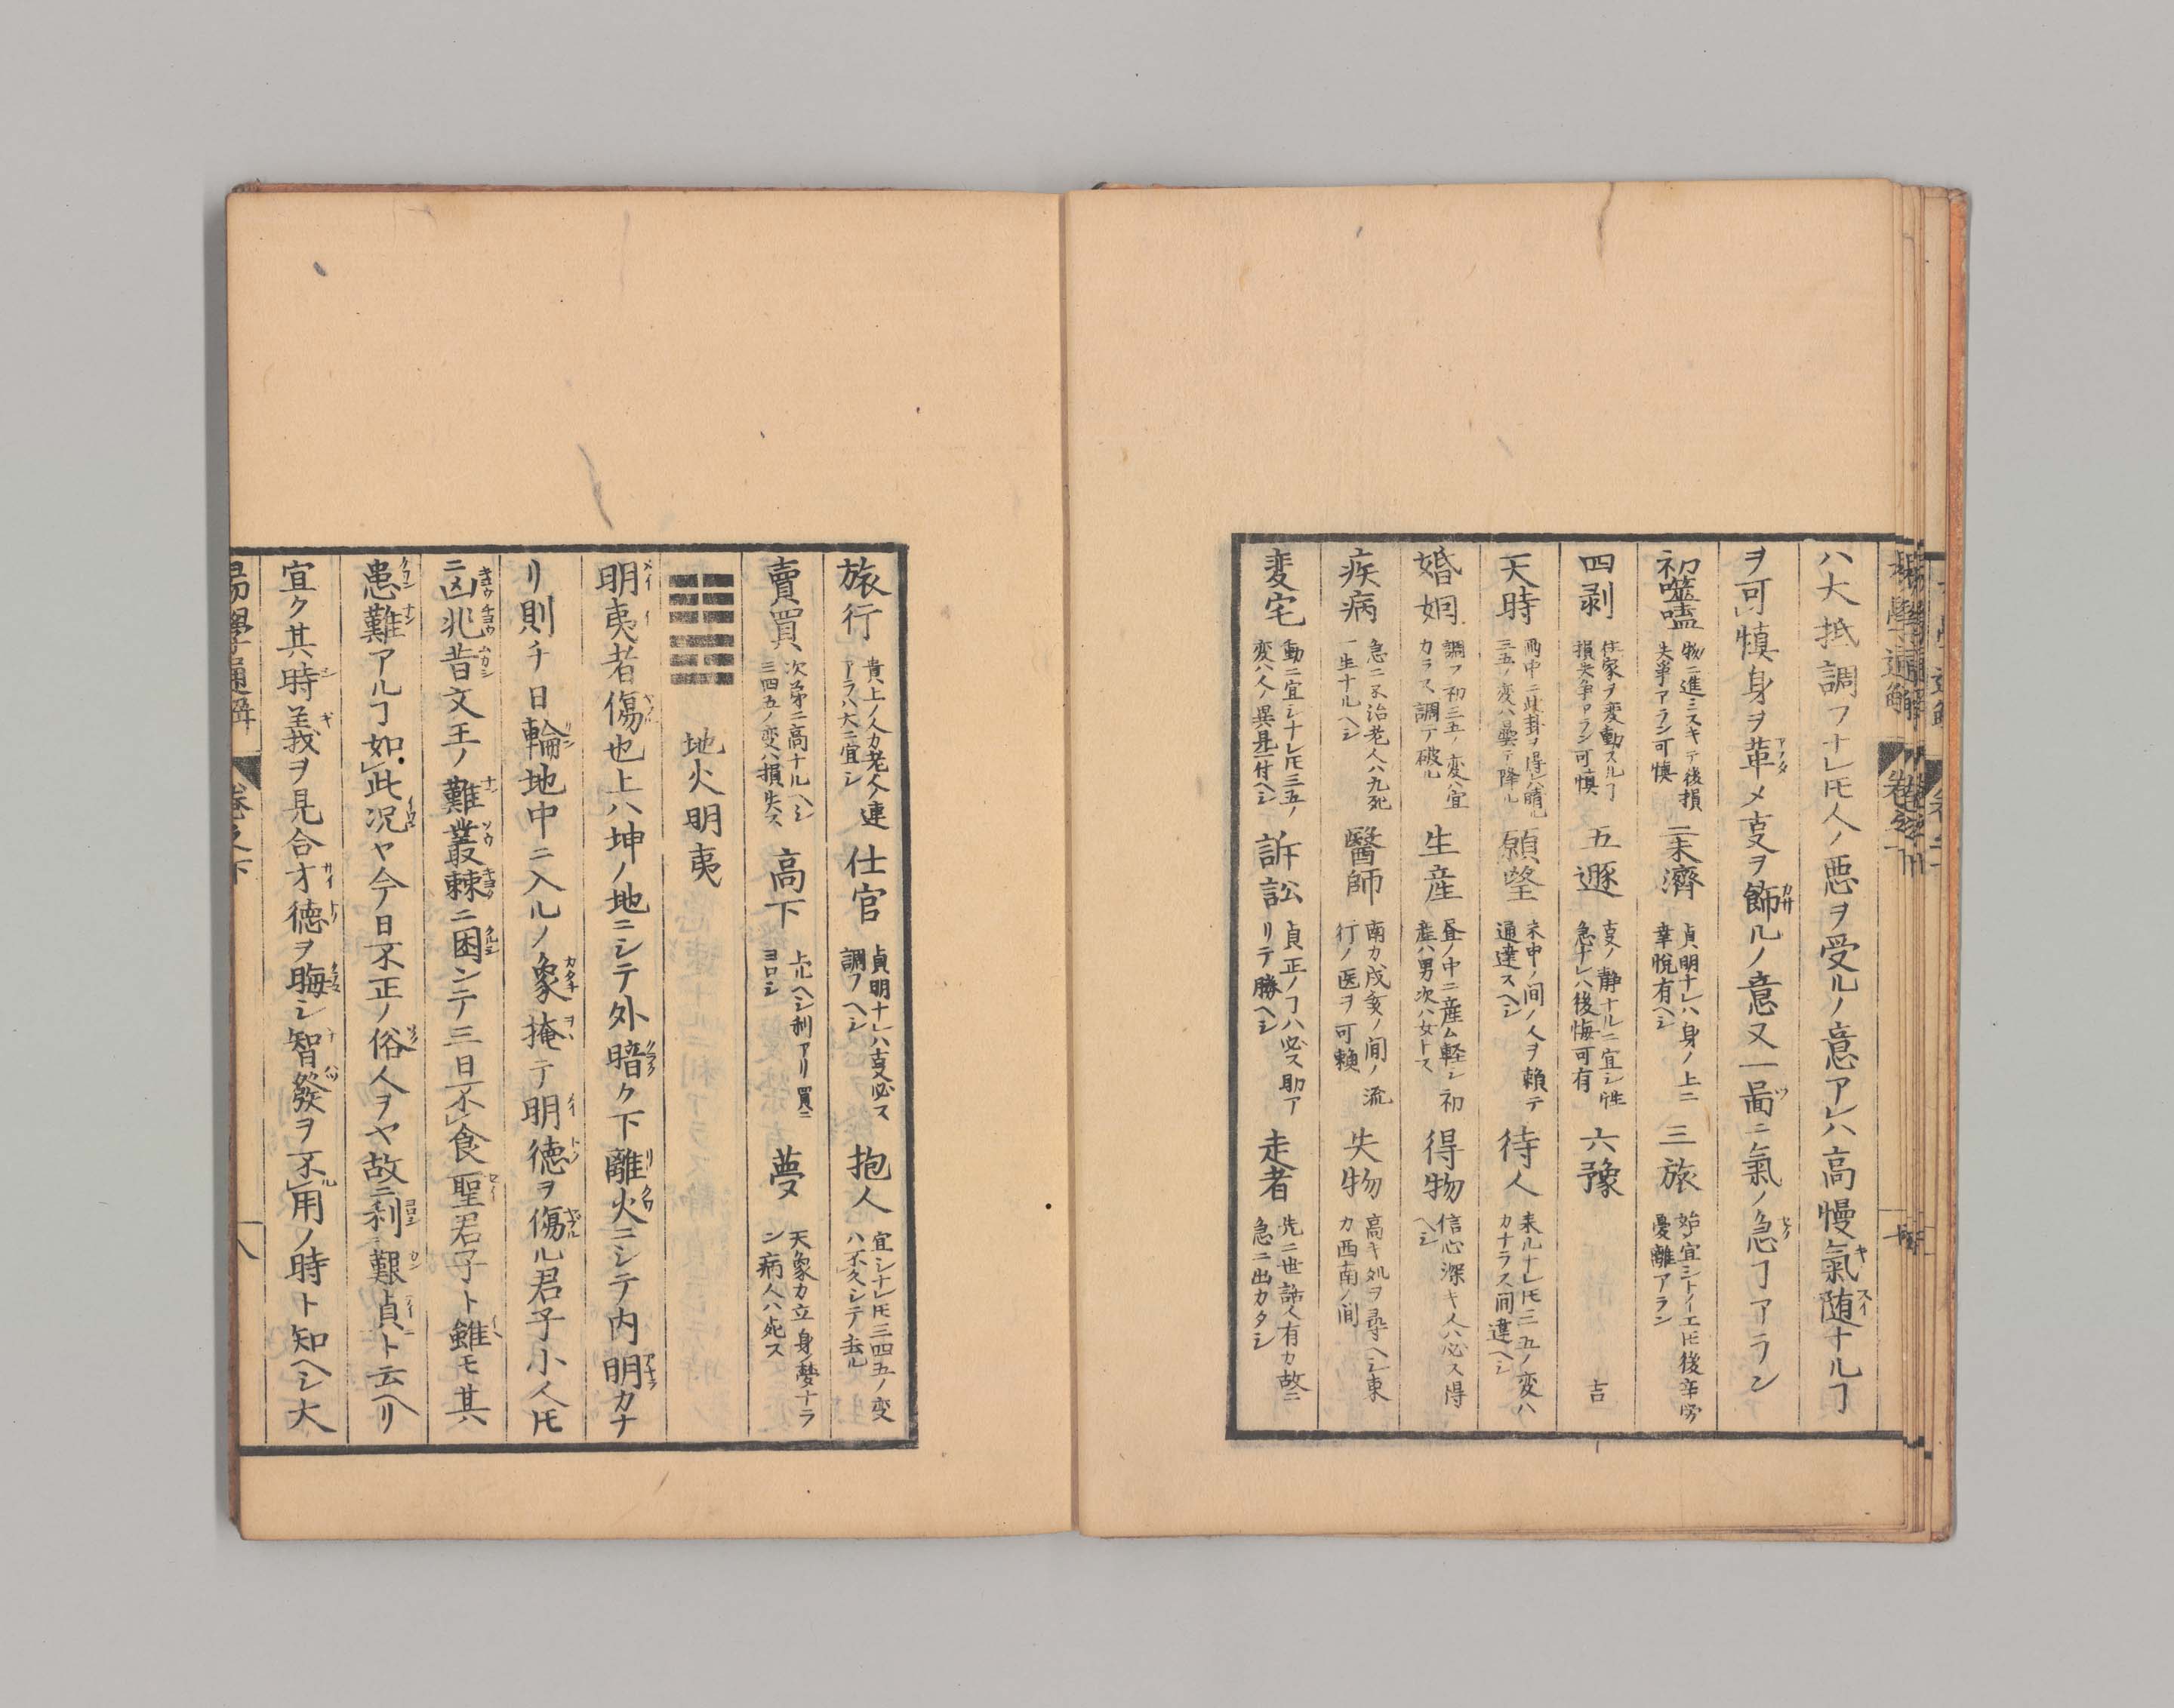 ハ大抵調フナレ𪜈人ノ悪ヲ受ルノ意アレハ高慢氣随ナルヿ
ヲ可慎身ヲ革メ叓ヲ飾ルノ意又一啚ニ氣ノ急ヿアラン
初噬嗑 物ニ進ミスキテ後損失爭アラン可慎 二未濟 貞明ナレハ身ノ上ニ幸悦有ヘシ 三旅 始宜シトイエ𪜈後辛労憂離アラン
四剥 住家ヲ変動スルヿ損失争アラン可慎 五遯 叓ノ静ナルニ宜シ性急ナレハ後悔可有 六豫 吉
天時 雨中ニ此卦ヲ得ハ晴ル三五ノ変ハ曇テ降ル 願望 未申ノ间ノ人ヲ頼テ通達スヘシ 待人 来ルナレ𪜈三五ノ変ハカナラス间違ヘシ
婚姻 調フ初三五ノ変ハ宜カラス調テ破ル 生産 昼ノ中ニ産ム軽シ初産ハ男次ハ女トス 得物 信心深キ人ハ必ス得ヘシ
疾病 急ニ不治老人ハ九死一生ナルヘシ 醫師 南カ戌亥ノ间ノ流行ノ医ヲ可頼 失物 高キ処ヲ尋ヘシ東カ西南ノ间
変宅 動ニ宜シナレ𪜈三五ノ変ハ人ノ異見ニ付ヘシ 訴訟 貞正ノヿハ必ス助アリテ勝ヘシ 走者 先ニ世話人有カ故ニ急ニ出カタシ
旅行 貴上ノ人カ老人ノ連アラハ大ニ宜シ 仕官 貞明ナレハ叓必ス調フヘシ 抱人 宜シナレ𪜈三四五ノ変ハ不久シテ去ル
賣買 次第ニ高ナルヘシ三四五ノ変ハ損失ス 高下 上ルヘシ利アリ買ニヨロシ 夢 天象カ立身ノ夢ナラン病人ハ死ス
地火明夷
明夷者傷也上ハ坤ノ地ニシテ外暗ク下離火ニシテ内明カナ
リ則チ日輪地中ニ入ルノ象掩テ明徳ヲ傷ル君子小人𪜈
ニ凶兆昔文王ノ難叢棘ニ困ンテ三日不食聖君子ト雖モ其
患難アルヿ如此況ヤ今日不正ノ俗人ヲヤ故ニ利艱貞ト云ヘリ
宜ク其時義ヲ見合才徳ヲ晦シ智發ヲ不用ノ時ト知ヘシ大
易學通解 巻之下 八